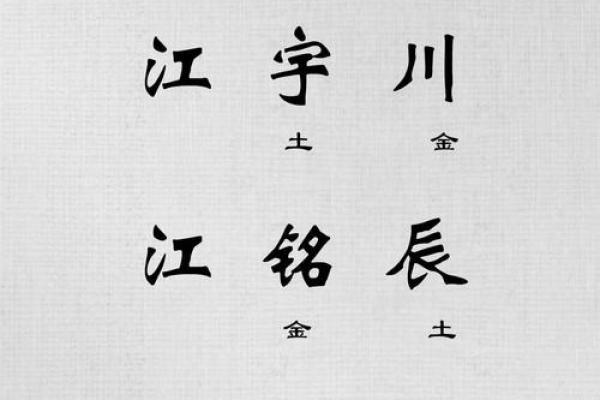 江宇川
土 金
江铭辰
金 土